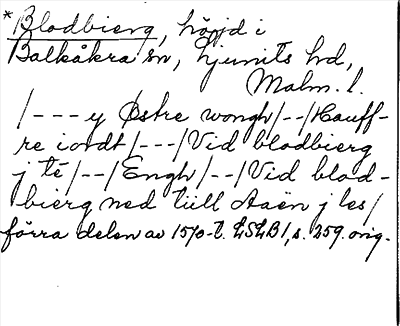 *Blodbierg, höjd i
Balkåkra sn, Ljunits hd,
Malm. l.
/---y Østre wongh/--/Hauff-
re iordt/---/Vid blodbierg
j té/--/Engh/--/Vid blod-
bierg ned tiill Aaen j les/
förra delen av 1570-t. LSLB1, s. 259. orig.